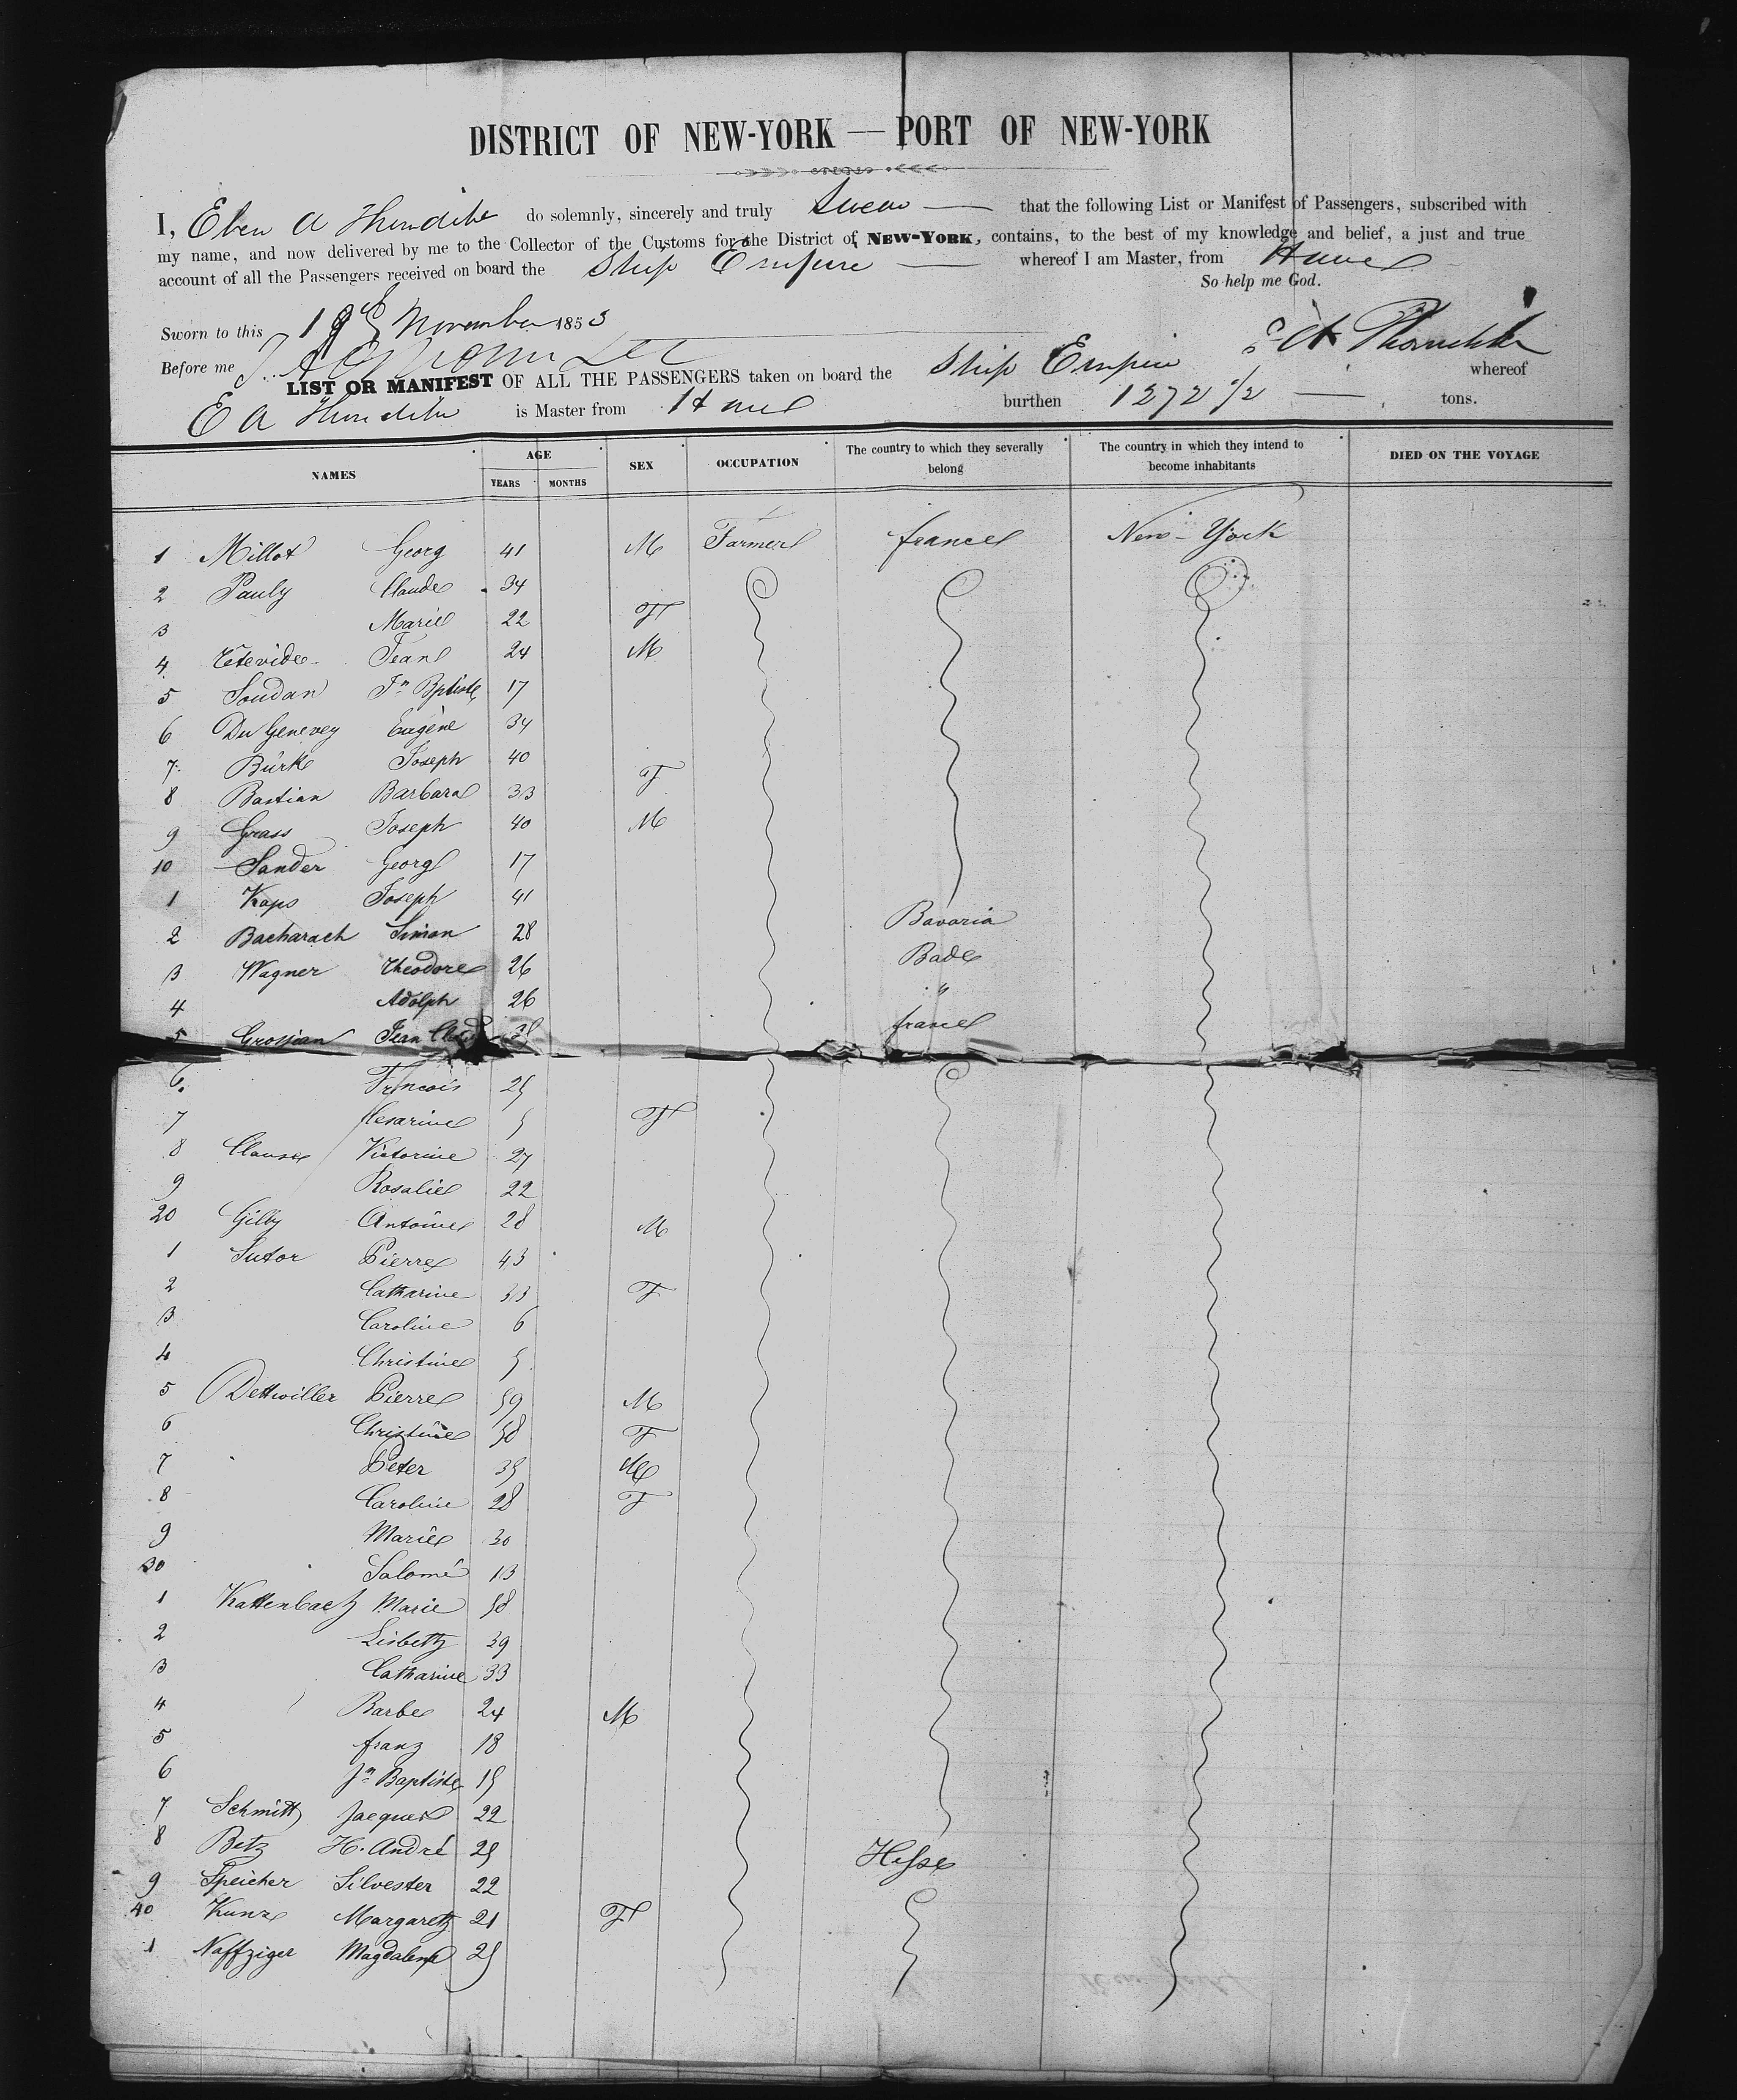 DISTRICT OF NEW-YORK — PORT OF NEW-YORK
I, Eben A Thorndike do solemnly, sincerely and truly Swear — that the following List or Manifest of Passengers, subscribed with
my name, and now delivered by me to the Collector of the Customs for the District of NEW-YORK, contains, to the best of my knowledge and belief, a just and true
account of all the Passengers received on board the Ship Empire — whereof I am Master, from Havre
So help me God.
Sworn to this 19th November 1853
Before me
E A Thorndike
LIST OR MANIFEST OF ALL THE PASSENGERS taken on board the Ship Empire whereof
E A Thorndike is Master from Havre burthen 1272 1/2 — tons.
NAMES AGE YEARS MONTHS SEX OCCUPATION The country to which they severally belong The country in which they intend to become inhabitants DIED ON THE VOYAGE
1 Millot Georg 41 M Farmer france New-York
2 Pauly Claude 34
3 Marie 22 F
4 Tetevide Jean 24 M
5 Soudan Jn Bptiste 17
6 Du Genevey Eugène 34
7 Bürke Joseph 40
8 Bastian Barbara 33 F
9 Grass Joseph 40 M
10 Sander Georg 17
1 Kaps Joseph 41
2 Bacharach Simon 28 Bavaria
3 Wagner Theodore 26 Bade
4 Adolph 26 "
5 Grosjean Jean france
6 Francois 25
7 Cesarine 5 F
8 Clause Victorine 27
9 Rosalie 22
20 Gilby Antoine 28 M
1 Sutor Pierre 43
2 Catharine 33 F
3 Caroline 6
4 Christine 5
5 Dettwiller Pierre 59 M
6 Christine 58 F
7 Peter 35 M
8 Caroline 28 F
9 Marie 30
30 Salomé 13
1 Kattenbach Marie 58
2 Lisbeth 39
3 Catharine 33
4 Barbe 24 M
5 franz 18
6 Jn Baptiste 15
7 Schmitt Jacques 22
8 Betz H. André 25 Hesse
9 Speicher Silvester 22
40 Kunz Margareth 21 F
1 Naffziger Magdalena 25